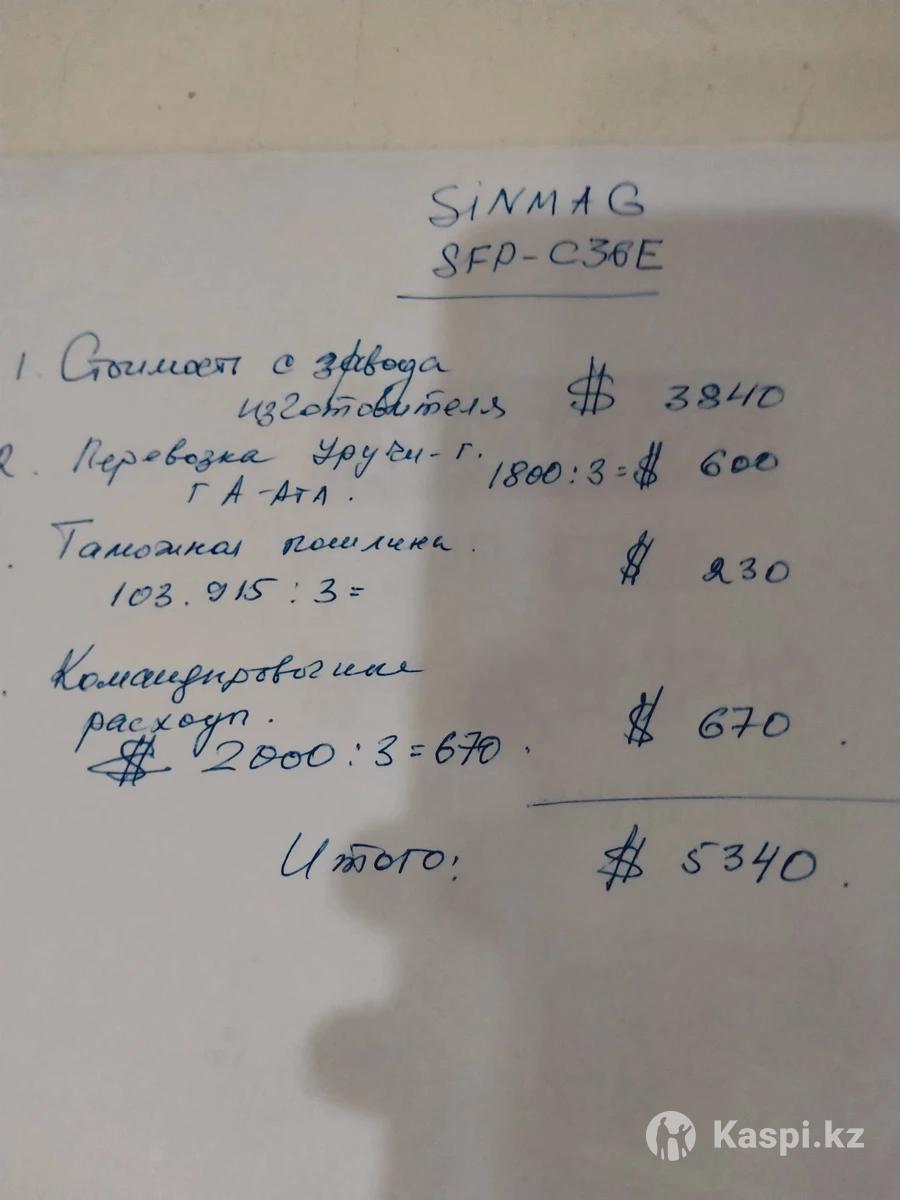 SiNMAG
SFP-C36E
1. Стоимость с завода
изготовителя $ 3840
2. Перевозка Урумчи-г. 1800:3=$ 600
г А-Ата.
. Таможная пошлина. $ 230
103.915:3=
. Командировочные
расходы. $ 670.
$ 2000:3=670.
Итого: $ 5340.
Kaspi.kz